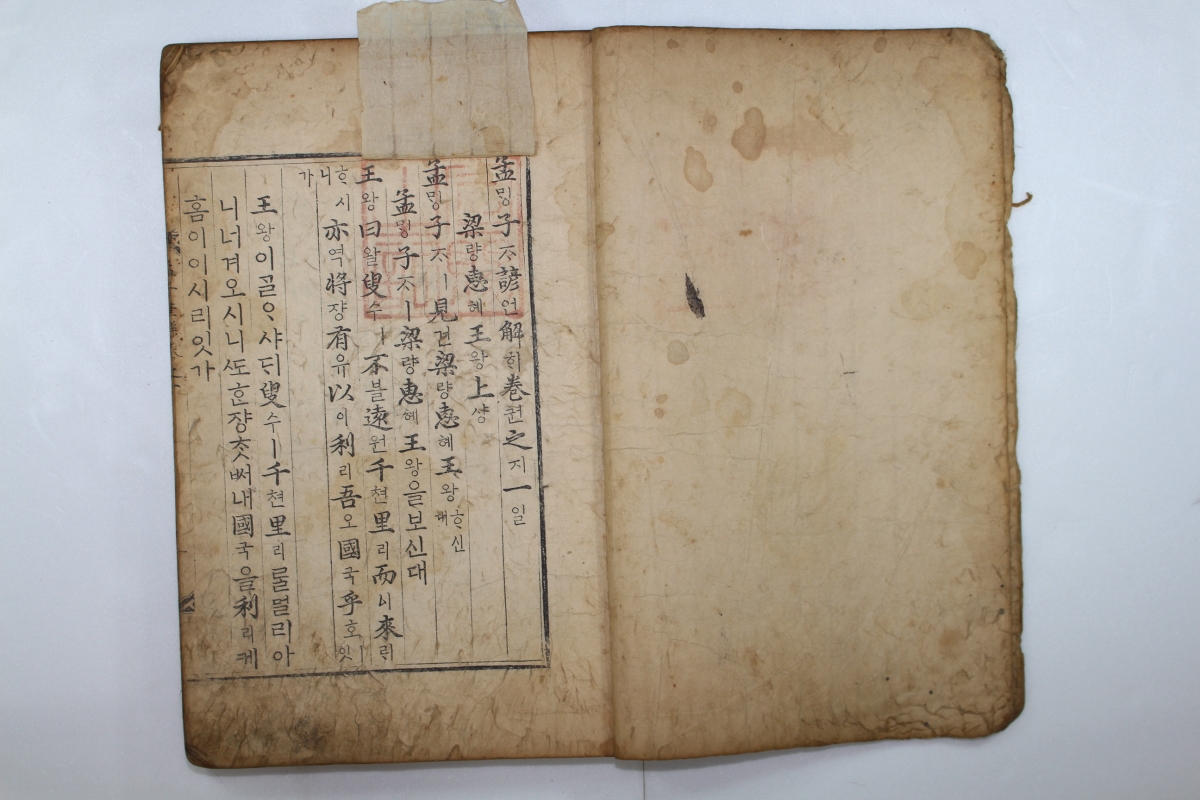 孟ᄆᆡᆼ子ᄌᆞ諺언解ᄒᆡ卷권之지一일
梁량惠혜王왕上샹
孟ᄆᆡᆼ子ᄌᆞㅣ見견梁량惠혜王왕ᄒᆞ신대
孟ᄆᆡᆼ子ᄌᆞㅣ梁량惠혜王왕을보신대
王왕曰왈叟수ㅣ不블遠원千쳔里리而이來ᄅᆡ
ᄒᆞ시니亦역將쟝有유以이利리吾오國국乎호잇
가
王왕이ᄀᆞᆯᄋᆞ샤ᄃᆡ叟수ㅣ千쳔里리ᄅᆞᆯ멀리아
니너겨오시니ᄯᅩᄒᆞᆫ쟝ᄎᆞᆺᄡᅥ내國국을利리케
홈이이시리잇가